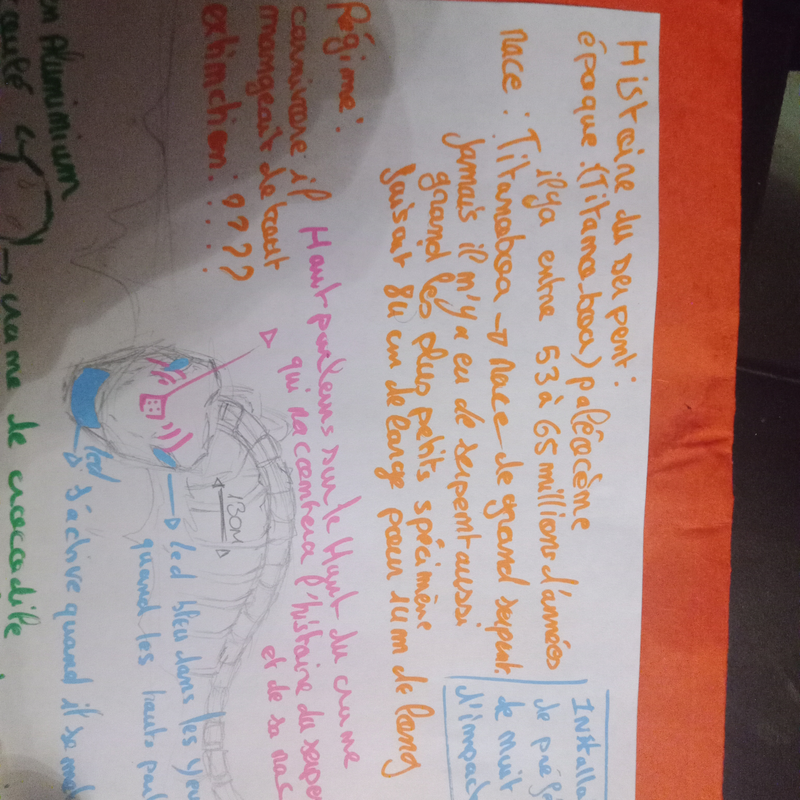 Histoire du serpent :
époque : (Titano-boa) paléocème
il y a entre 53 à 65 millions d'années
race : Titanoboa → race de grand serpent.
Jamais il n'y a eu de serpent aussi
grand les plus petits spécimène
faisait 80 cm de large pour 10 m de long
Installa
de préfé
de nuit
d'impac
Régime :
carnivore il
mangeait de tout
extinction : ????
Haut parleurs sur le Haut du crame
qui racontera l'histoire du serpe
et de sa rac
130M
led bleu dans les yeu
quand les hauts parl
led
s'active quand il se met
en Aluminium
→ crame de crocodile